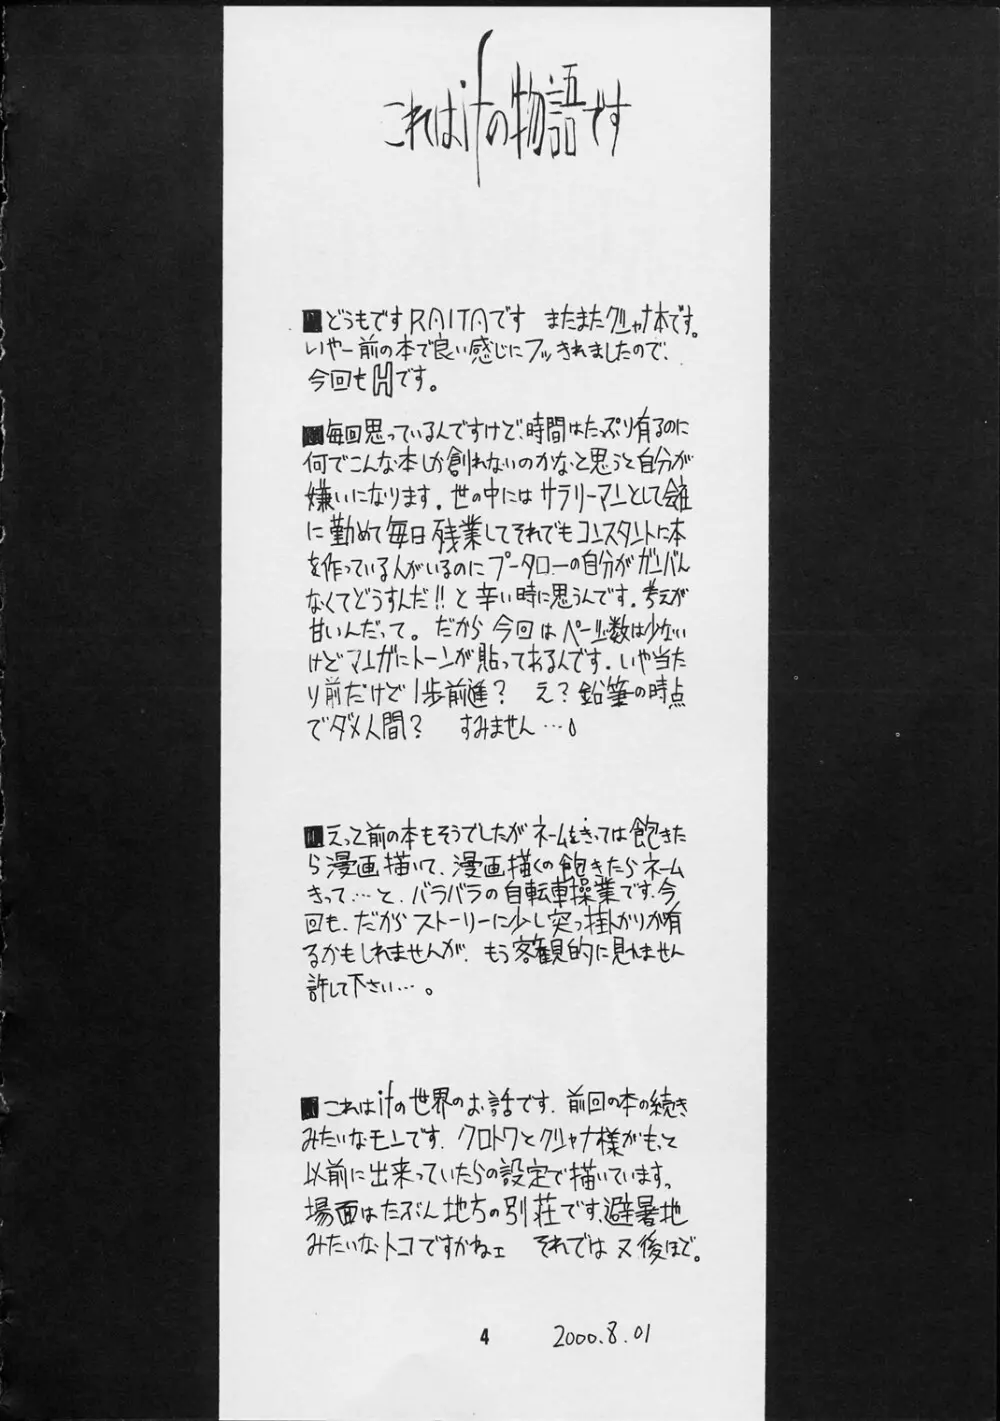 これはifの物語です
■どうもですRAITAです　またまたクシャナ本です。
いやー前の本で良い感じにフッきれましたので、
今回もHです。
■毎回思っているんですけど、時間はたっぷり有るのに
何でこんな本しか創れないのかなと思うと自分が
嫌いになります。世の中にはサラリーマンとして会社
に勤めて毎日残業してそれでもコンスタントに本
を作っている人がいるのにプータローの自分がガンバん
なくてどうすんだ!!と辛い時に思うんです。考えが
甘いんだって。だから今回はページ数は少ない
けどマンガにトーンが貼ってあるんです。いや当た
り前だけど1歩前進?　え?鉛筆の時点
でダメ人間?　すみません…。
■えっと前の本もそうでしたがネームをきっては飽きた
ら漫画描いて、漫画描くの飽きたらネーム
きって…と、バラバラの自転車操業です。今
回も、だからストーリーに少し突っ掛かりが有
るかもしれませんが、もう客観的に見れません
許して下さい…。
■これはifの世界のお話です。前回の本の続き
みたいなモンです。クロトワとクシャナ様がもっと
以前に出来っていたらの設定で描いています。
場面はたぶん地方の別荘です、避暑地
みたいなトコですかねェ　それでは又後ほど。
4　2000.8.01